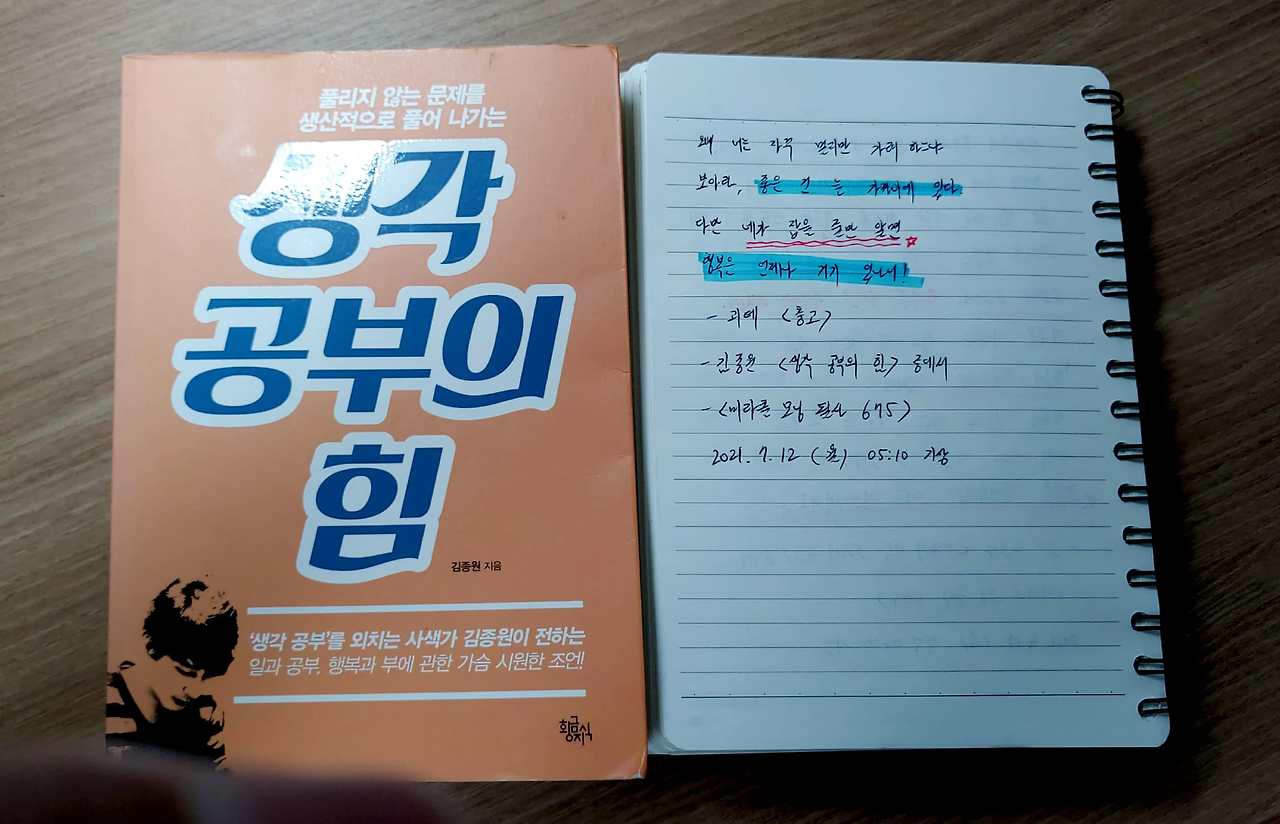 풀리지 않는 문제를
생산적으로 풀어 나가는
생각
공부의
힘
김종원 지음
'생각 공부'를 외치는 사색가 김종원이 전하는
일과 공부, 행복과 부에 관한 가슴 시원한 조언!
황금지식
왜 너는 자꾸 멀리만 가려 하느냐
보아라, 좋은 건 늘 가까이에 있다.
다만 네가 잡을 줄만 알면
행복은 언제나 거기 있나니!
- 괴테 <충고>
- 김종원 <생각 공부의 힘> 중에서
- <미라클 모닝 필사 675>
2021. 7. 12 (월) 05:10 기상